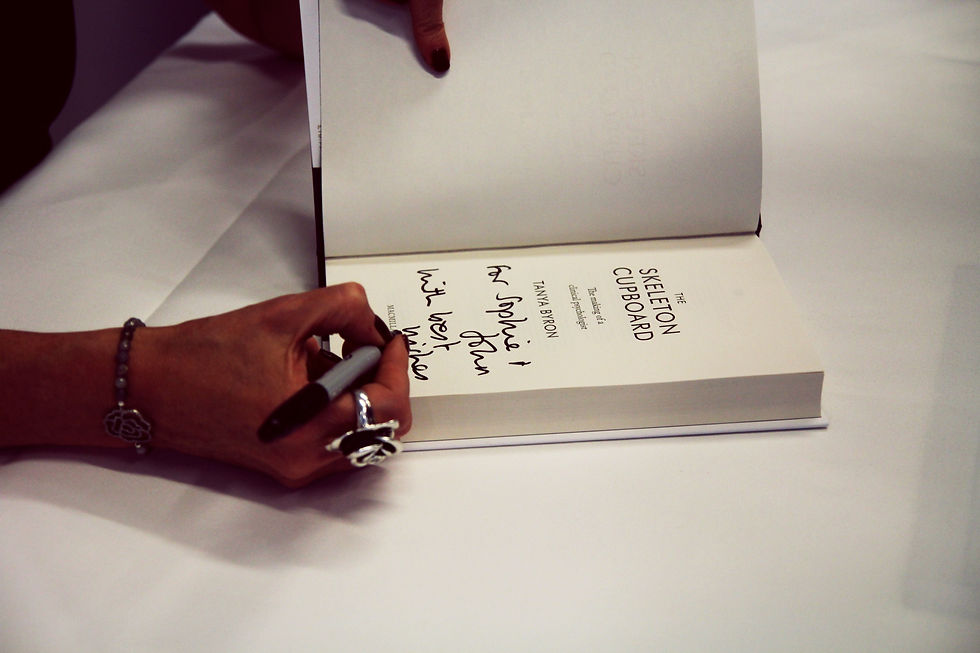 THE
SKELETON
CUPBOARD
The making of a
clinical psychologist
TANYA BYRON
For Sophie +
John
with best
wishes